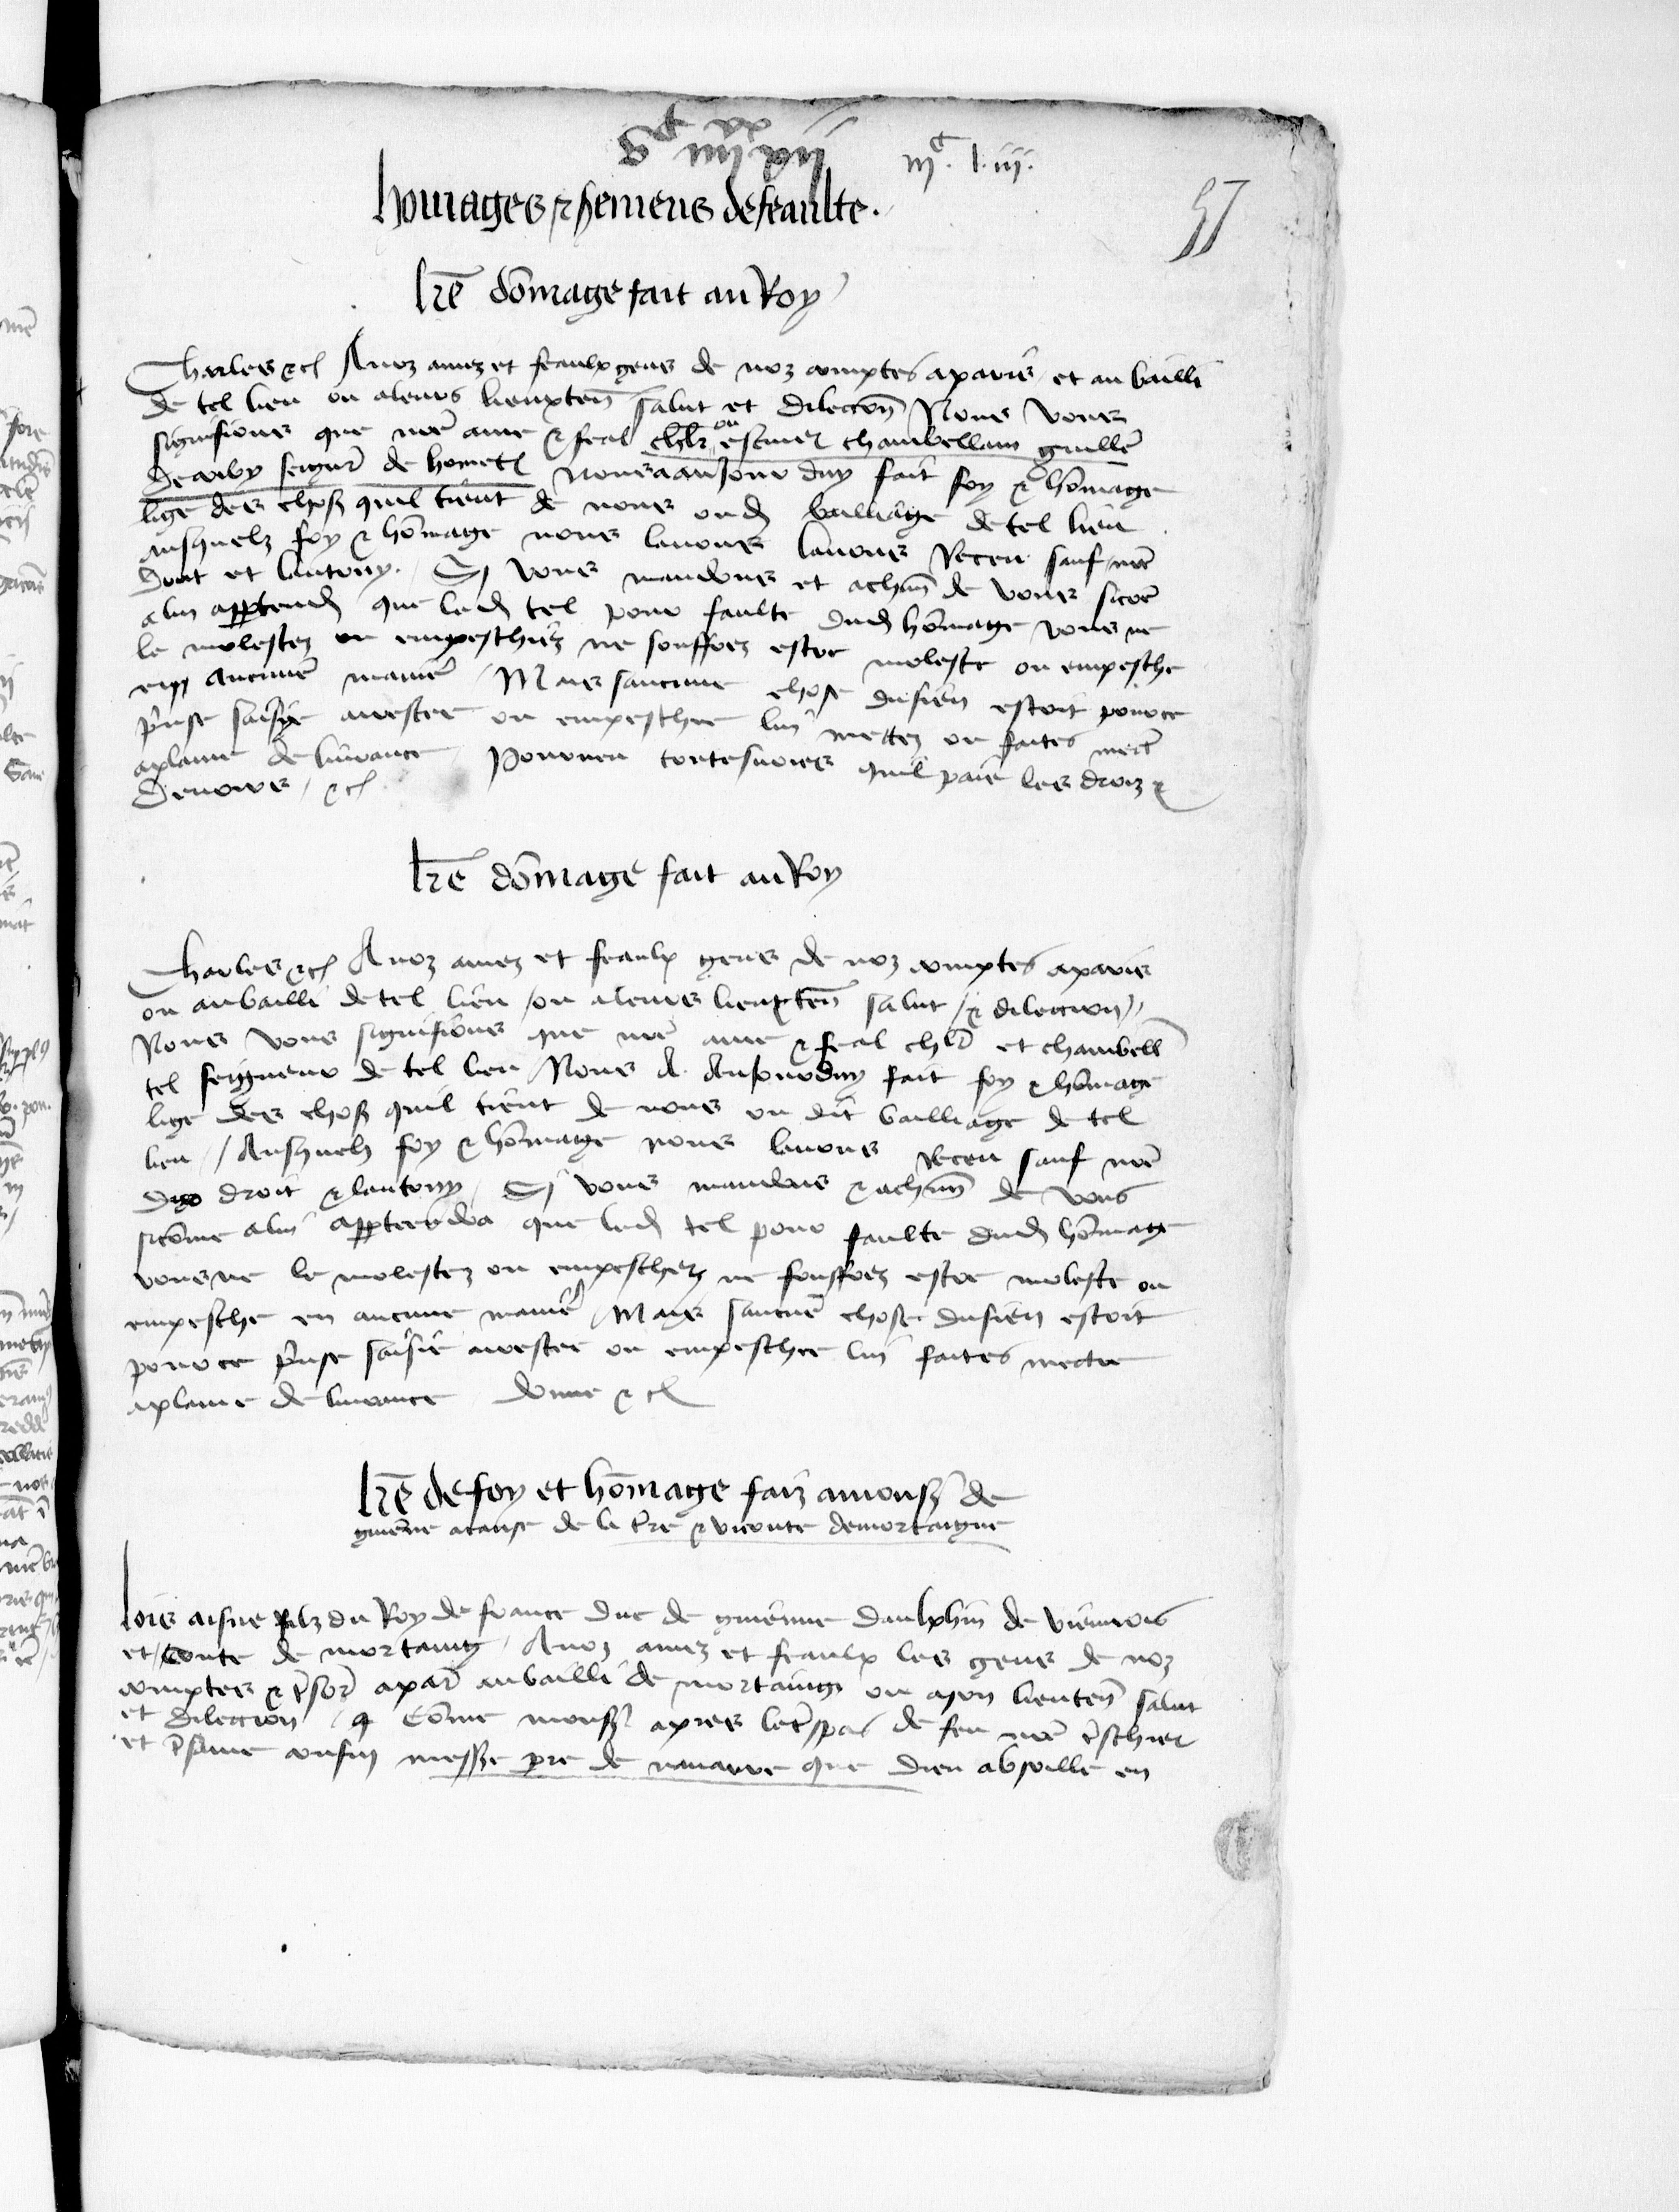 iiiᶜ. l. iij.
57
homages & seremens de feaulte.
lrē dōmage fait au Roy
Charles &c A noz amez et feaulx gens de noz comptes a paris et au bailli
de tel lieu ou a leurs lieuxtenn̄ salut et dilection Nous vous
signifions que nrē ame & feal chlr ou escuier chambellan guillē
de seigneur̄ de hometz Nous a au jour duy fait foy & hōmage
lige des choses quil tient de nous oud bailliage de tel lieu
ausquelz foy & hōmage nous lavons lavons Receu sauf nrē
droit et lautruy. Si vous mandons et a chūn de vous sicōe
a lui apptendr̄ que led tel pour faulte dud hōmage vous ne
le molestez ou empeschiez ne souffrez estre moleste ou empesche
en aucunē manierē Mais saucune chose du sien estoit pour ce
prinse saisie arrestee ou empeschee lui mettez ou faites mectrē
a plaine delivrance Pourveu toutesvoies quil paie les droiz &
devoirs &c
lrē dōmage fait au Roy
Charles &c A noz amez et feaulx gens de noz comptes a paris
ou au bailli de tel lieu ou a leurs lieuxtenn̄ salut & dilection
Nous vous signifions que nrē ame & feal chlr̄ et chambell̄
tel seigneur de tel lieu Nous a au jourduy fait foy & hōmage
lige des choses quil tient de nous ou dit bailliage de tel
lieu Ausquelz foy & hōmage nous lavons Receu sauf nrē
droit & lautruy Si vous mandons & a chūn de vous
sicōme a lui apptendra que led tel pour faulte dud hōmage
vous ne le molestez ou empeschez ne souffrez estre moleste ou
empesche en aucune manierē Mais saucunē chose du sien estoit
pour ce prinse saisie arrestee ou empeschee lui faites mectre
a plaine delivrance donne &c
lrē de foy et hōmage faiz a monsr̄ de
guienne a cause de la trē & viconte de mortaigne
Loys aisne filz du Roy de france duc de guienne daulphin de viennois
et conte de mortaing A noz amez et feaulx les gens de noz
comptes & tr̄sorr̄ a par̄ au bailli de mortaing ou a son lieutenn̄ salut
et dilection Cōme monsr̄ apres le tr̄spas de feu nrē tr̄schier
et tr̄same cousin messrē prē de navarre que dieu absoille en